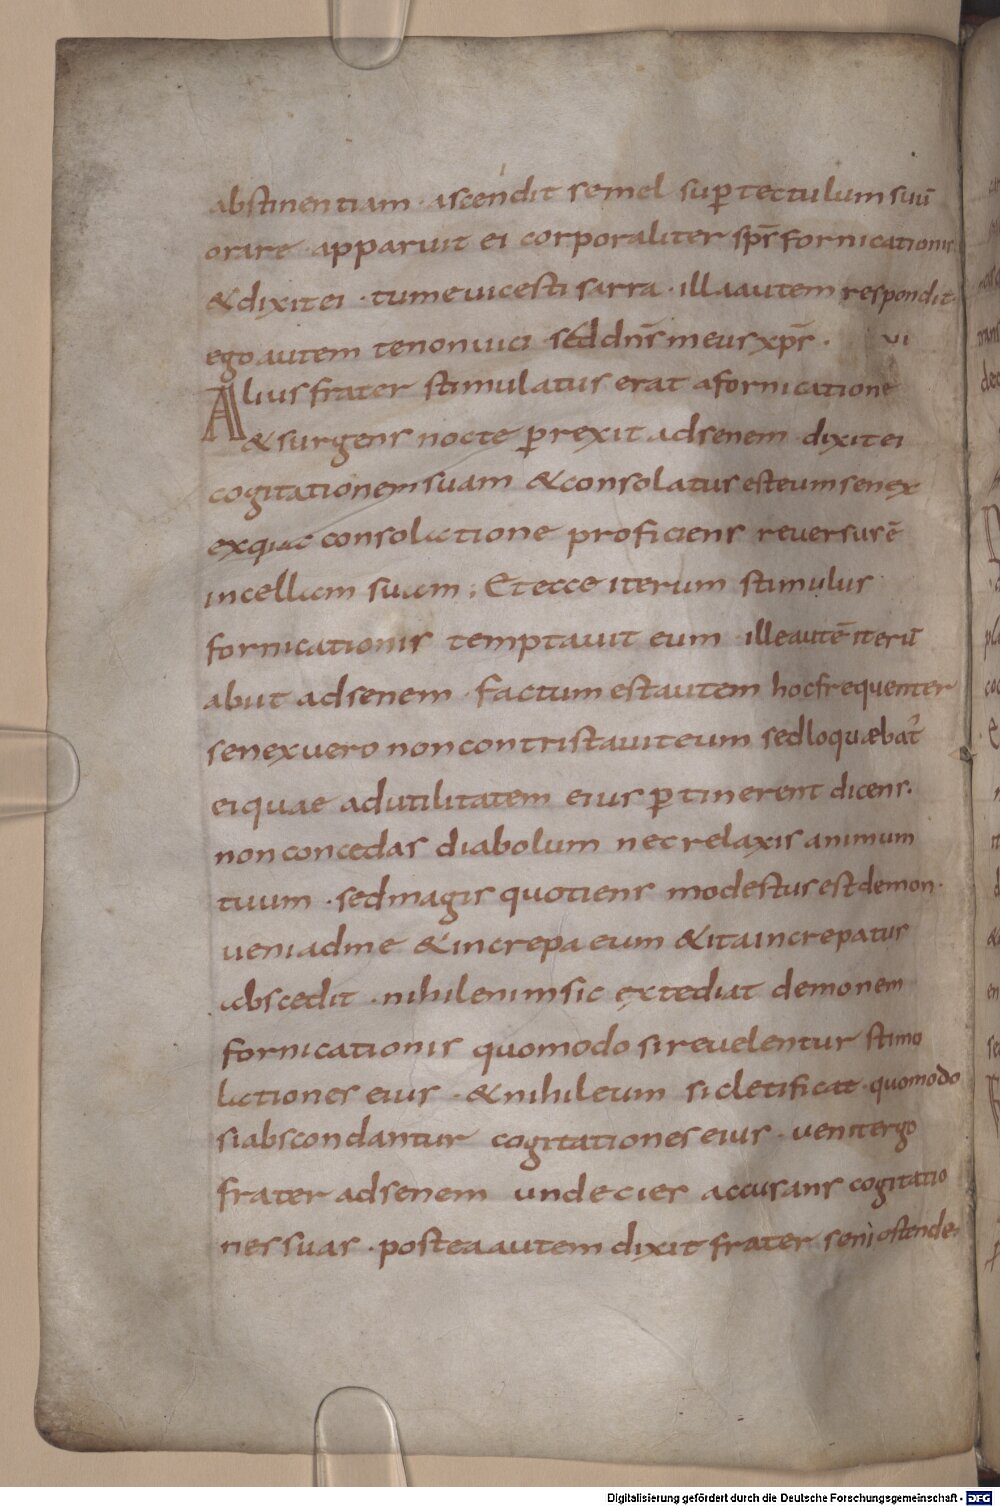 abstinentiam · ascendit semel sup̱ tectulum suū
orare · apparuit ei corporaliter sp̄s fornicationis
& dixit ei · tu me uicesti sarra · illa autem respondit
ego autem te non uici sed dn̄s meus xp̄s · VI
Alius frater stimulatus erat a fornicatione
& surgens nocte p̱rexit ad senem dixit ei
cogitationem suam & consolatus est eum senex
ex qua consolatione proficiens reuersus ē
in cellam suam ; Et ecce iterum stimulus
fornicationis temptauit eum · ille autē iterū
abiit ad senem · factum est autem hoc frequenter
senex uero non contristauit eum sed loquæbat᷑
ei quae ad utilitatem eius p̱tinerent dicens ·
non concedas diabolum nec relaxis animum
tuum · sed magis quotiens modestus est demon ·
ueni ad me & increpa eum & ita increpatus
abscedit · nihil enim sic extediat demonem
fornicationis quomodo si reuelentur stimo
lationes eius · & nihil eum sic letificat · quomodo
si abscondantur cogitationes eius · uenit ergo
frater ad senem undecies accusans cogitatio
nes suas · postea autem dixit frater seni ostende
Digitalisierung gefördert durch die Deutsche Forschungsgemeinschaft - DFG